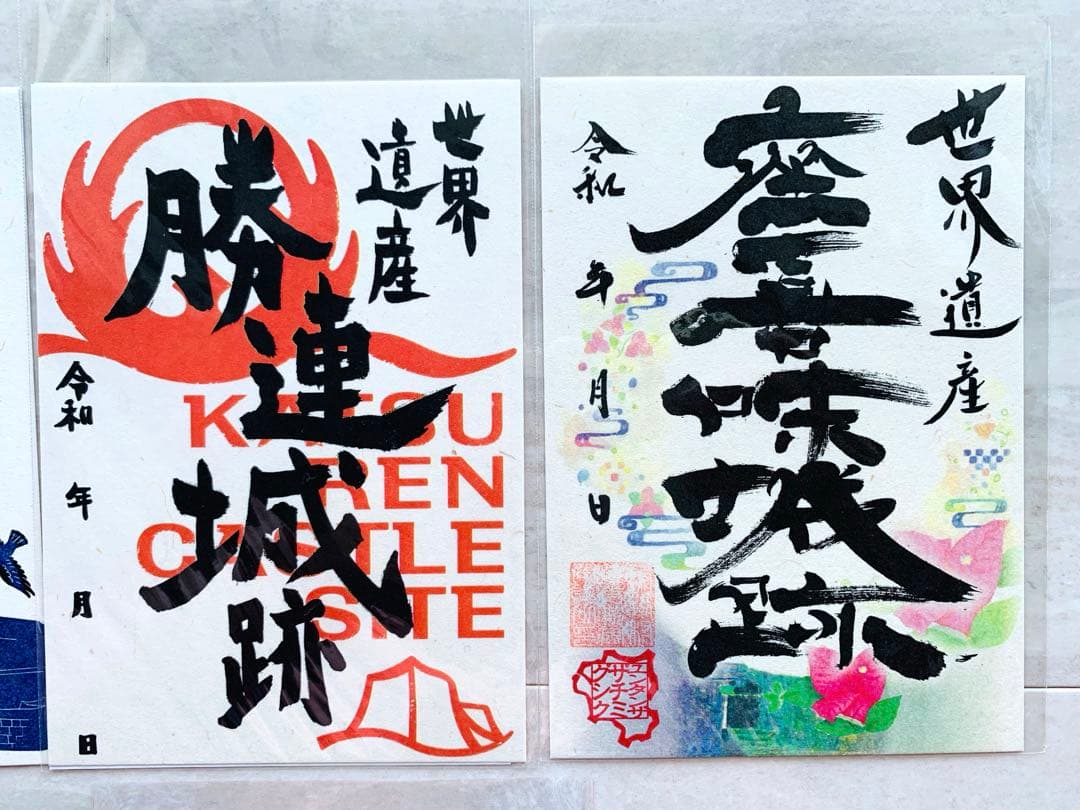 世界
遺産
勝連城跡
令和 年 月 日
KATSU
REN
CASTLE
SITE
世界遺産
座喜味城跡
令和 年 月 日
ユンタンザ
ザチミ
グシク